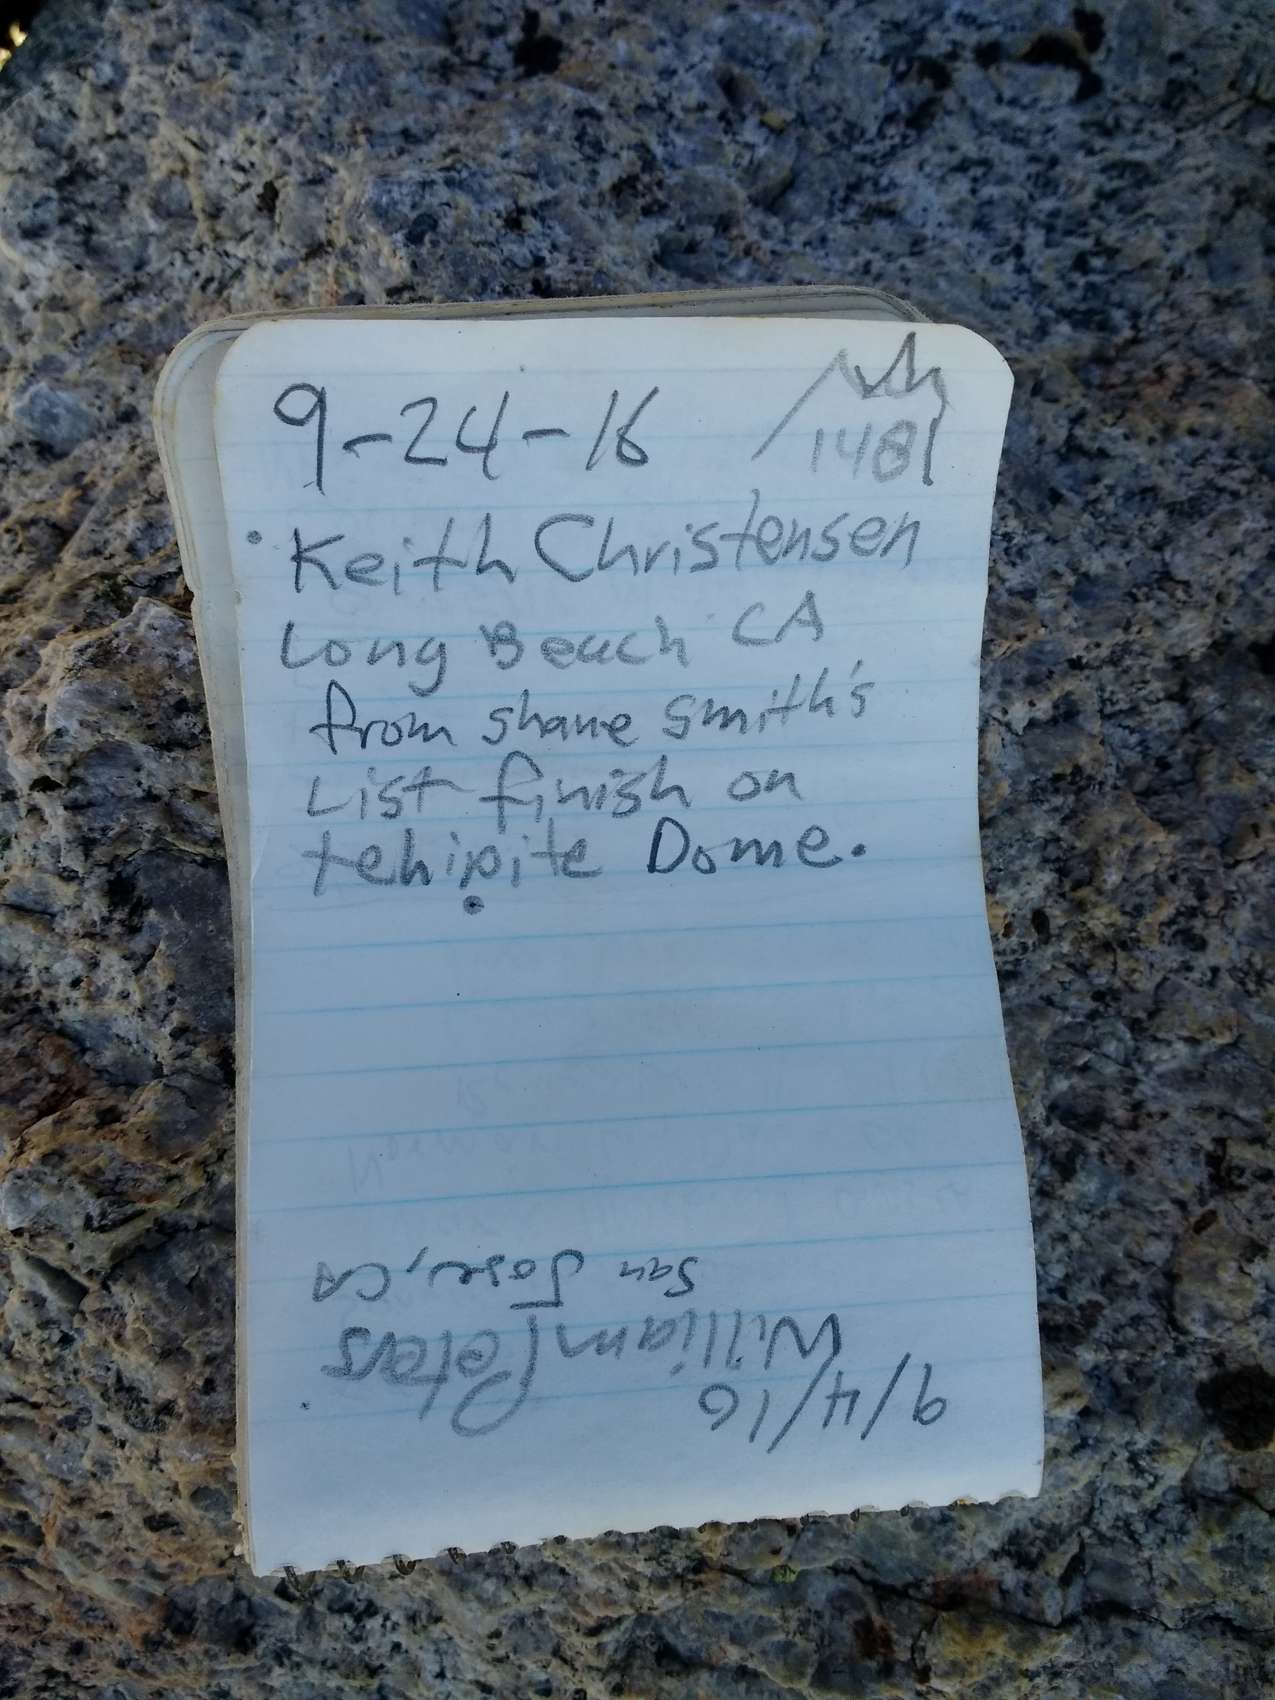 9-24-16
1481
Keith Christensen
Long Beach CA
from shane smith's
List finish on
tehipite Dome.
9/4/16
William Peters
San Jose, CA